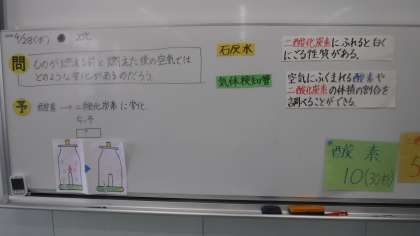 4/28(水) 21℃
問
ものが燃える前と燃えた後の空気では
どのような変化があるのだろう。
予
酸素 → 二酸化炭素に変化
石灰水
二酸化炭素にふれると白く
にごる性質がある。
気体検知管
空気にふくまれる酸素や
二酸化炭素の体積の割合を
調べることができる。
酸素